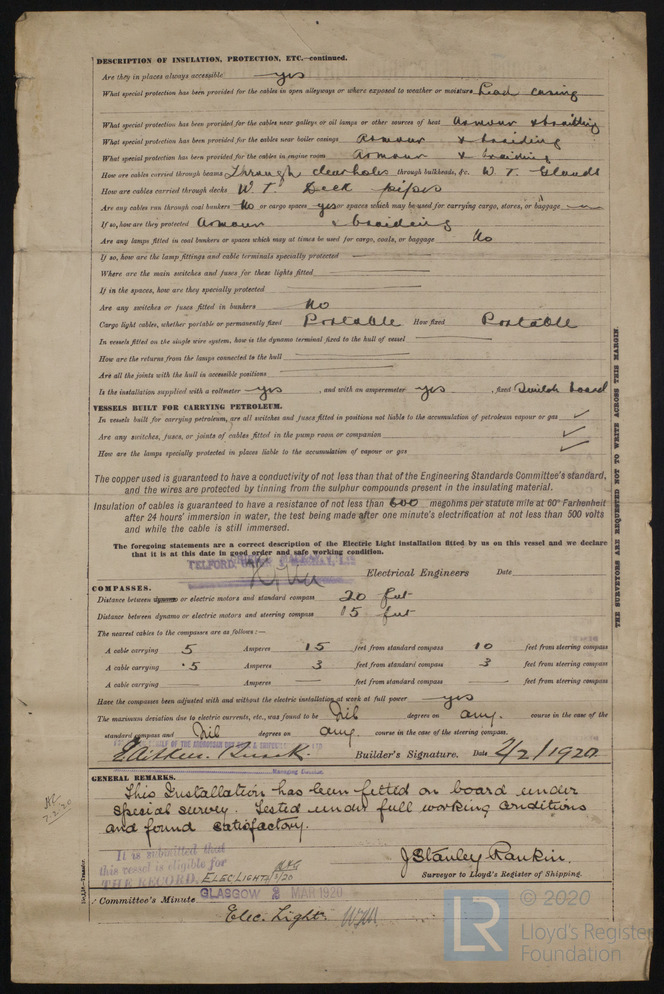 DESCRIPTION OF INSULATION, PROTECTION, ETC.—continued.
Are they in places always accessible yes
What special protection has been provided for the cables in open alleyways or where exposed to weather or moisture Lead casing
What special protection has been provided for the cables near galleys or oil lamps or other sources of heat Armour & braiding
What special protection has been provided for the cables near boiler casings Armour & braiding
What special protection has been provided for the cables in engine room Armour & braiding
How are cables carried through beams Through clearholes through bulkheads, &c. W. T. Glands
How are cables carried through decks W. T. Deck pipes
Are any cables run through coal bunkers No or cargo spaces yes or spaces which may be used for carrying cargo, stores, or baggage —
If so, how are they protected Armour & braiding
Are any lamps fitted in coal bunkers or spaces which may at times be used for cargo, coals, or baggage No
If so, how are the lamp fittings and cable terminals specially protected
Where are the main switches and fuses for these lights fitted
If in the spaces, how are they specially protected
Are any switches or fuses fitted in bunkers No
Cargo light cables, whether portable or permanently fixed Portable How fixed Portable
In vessels fitted on the single wire system, how is the dynamo terminal fixed to the hull of vessel
How are the returns from the lamps connected to the hull
Are all the joints with the hull in accessible positions
Is the installation supplied with a voltmeter yes , and with an amperemeter yes , fixed Switch board
VESSELS BUILT FOR CARRYING PETROLEUM.
In vessels built for carrying petroleum, are all switches and fuses fitted in positions not liable to the accumulation of petroleum vapour or gas ✓
Are any switches, fuses, or joints of cables fitted in the pump room or companion ✓
How are the lamps specially protected in places liable to the accumulation of vapour or gas ✓
The copper used is guaranteed to have a conductivity of not less than that of the Engineering Standards Committee's standard,
and the wires are protected by tinning from the sulphur compounds present in the insulating material.
Insulation of cables is guaranteed to have a resistance of not less than 600 megohms per statute mile at 60° Farhenheit
after 24 hours' immersion in water, the test being made after one minute's electrification at not less than 500 volts
and while the cable is still immersed.
The foregoing statements are a correct description of the Electric Light installation fitted by us on this vessel and we declare
that it is at this date in good order and safe working condition.
TELFORD, LTD
Electrical Engineers Date
COMPASSES.
Distance between dynamo or electric motors and standard compass 20 feet
Distance between dynamo or electric motors and steering compass 15 feet
The nearest cables to the compasses are as follows:—
A cable carrying 5 Amperes 15 feet from standard compass 10 feet from steering compass
A cable carrying .5 Amperes 3 feet from standard compass 3 feet from steering compass
A cable carrying — Amperes — feet from standard compass — feet from steering compass
Have the compasses been adjusted with and without the electric installation at work at full power yes
The maximum deviation due to electric currents, etc., was found to be Nil degrees on any course in the case of the
standard compass and Nil degrees on any course in the case of the steering compass.
Builder's Signature. Date 2/2/1920
Managing Director.
GENERAL REMARKS.
This Installation has been fitted on board under
special survey. Tested under full working conditions
and found satisfactory.
It is submitted that
this vessel is eligible for
THE RECORD. ELEC LIGHT 3/20
J Stanley Rankin.
Surveyor to Lloyd's Register of Shipping.
Committee's Minute GLASGOW 2 MAR 1920
Elec. Light
THE SURVEYORS ARE REQUESTED NOT TO WRITE ACROSS THIS MARGIN.
© 2020
LR Lloyd's Register
Foundation